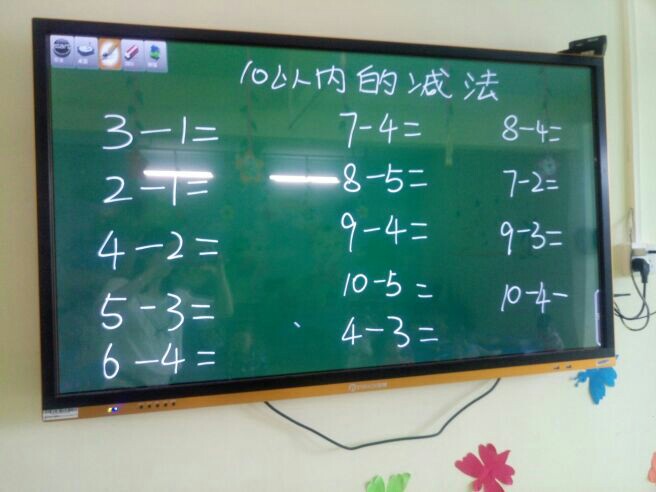 10以内的减法
3-1= 7-4= 8-4=
2-1= 8-5= 7-2=
4-2= 9-4= 9-3=
5-3= 10-5= 10-4-
6-4= 4-3=